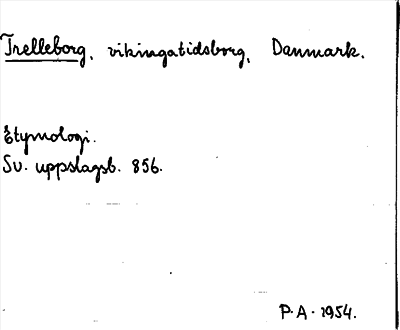 Trelleborg, vikingatidsborg, Danmark.
Etymologi.
Sv. uppslagsb. 856.
P.A. 1954.